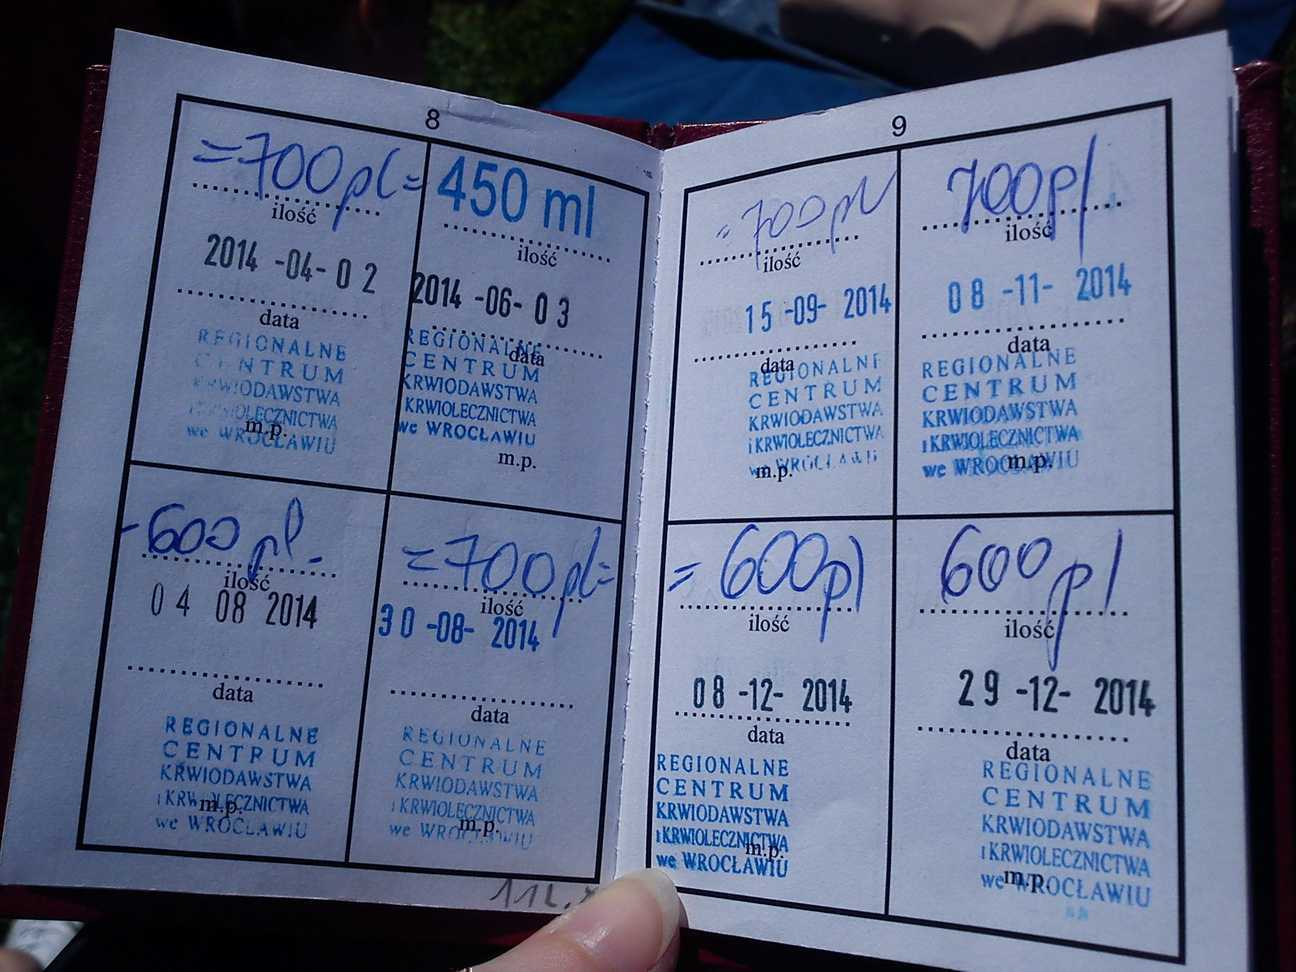 8
=700 pl=
ilość
2014 -04- 0 2
data
REGIONALNE
CENTRUM
KRWIODAWSTWA
KRWIOLECZNICTWA
m.p.
we WROCŁAWIU
450 ml
ilość
2014 -06- 0 3
data
REGIONALNE
CENTRUM
KRWIODAWSTWA
KRWIOLECZNICTWA
we WROCŁAWIU
m.p.
-600 pl.-
ilość
0 4 08 2014
data
REGIONALNE
CENTRUM
KRWIODAWSTWA
i KRWIOLECZNICTWA
m.p.
we WROCŁAWIU
=700 pl=
ilość
3 0 -08- 2014
data
REGIONALNE
CENTRUM
KRWIODAWSTWA
i KRWIOLECZNICTWA
m.p.
we WROCŁAWIU
9
=700 pl
ilość
1 5 -09- 2014
data
REGIONALNE
CENTRUM
KRWIODAWSTWA
i KRWIOLECZNICTWA
we WROCŁAWIU
m.p.
700 pl
ilość
0 8 -11- 2014
data
REGIONALNE
CENTRUM
KRWIODAWSTWA
i KRWIOLECZNICTWA
we WROCŁAWIU
m.p.
= 600 pl
ilość
0 8 -12- 2014
data
REGIONALNE
CENTRUM
KRWIODAWSTWA
i KRWIOLECZNICTWA
m.p.
we WROCŁAWIU
600 pl
ilość
2 9 -12- 2014
data
REGIONALNE
CENTRUM
KRWIODAWSTWA
i KRWIOLECZNICTWA
m.p.
we WROCŁAWIU